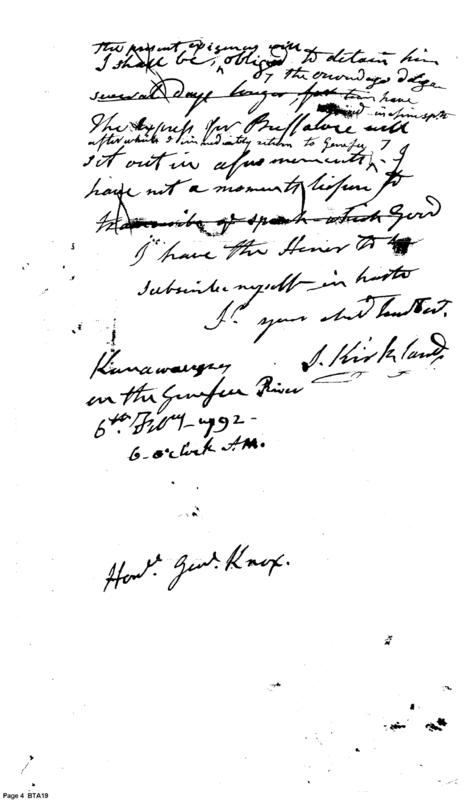 The present exigency will
I shall be, obliged to detain him
7 the onondaga
several days longer, have
in a fine
The Express for Buffaloe will
after which I immediately return to Genesee 7
set out in a few moments, - I
have not a moments leisure to
transcribe of speech which Genl
I have the Honor to be
subscribe myself in haste
Sr. your obdt humbl Sert.
Kanawaugus S. Kirkland
on the Genesee River
6th. Feby - 1792 -
6 - o'clock A.M.
Honle. Genl. Knox.
Page 4 BTA19